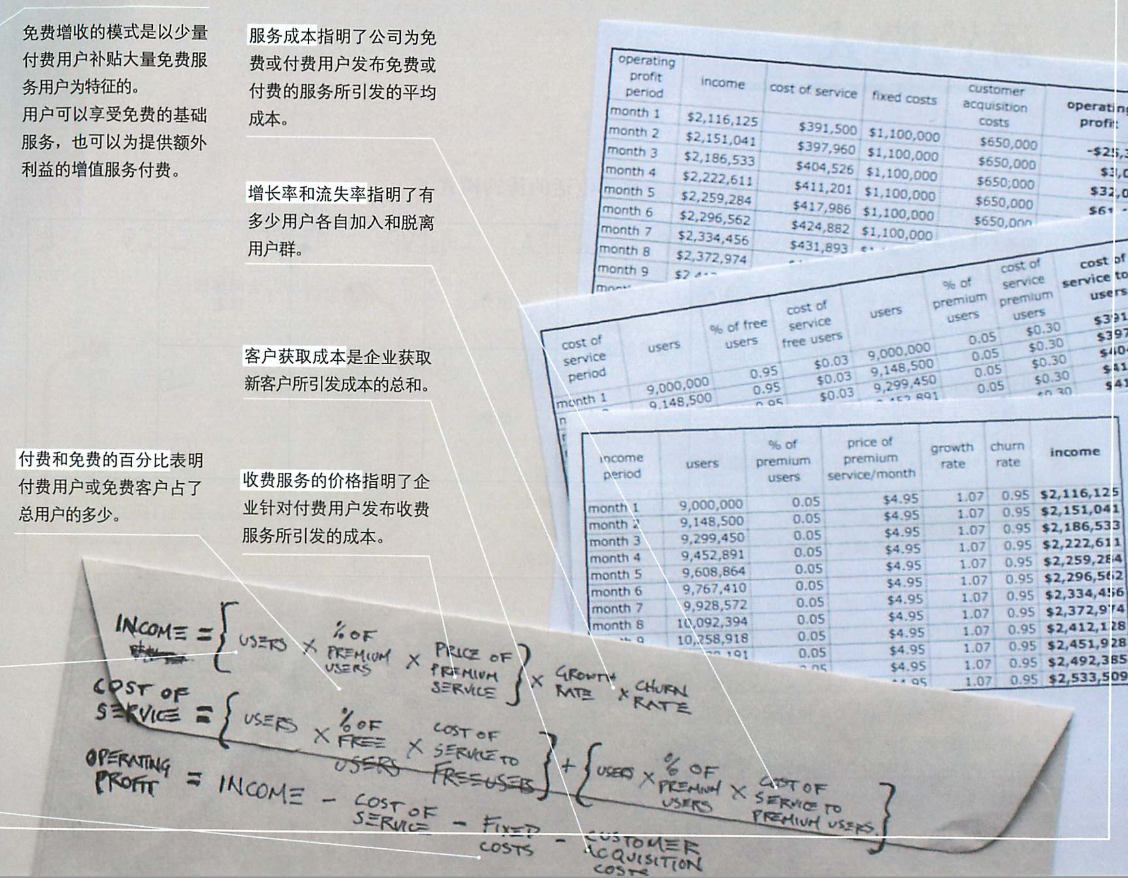 免费增收的模式是以少量
付费用户补贴大量免费服
务用户为特征的。
用户可以享受免费的基础
服务，也可以为提供额外
利益的增值服务付费。
服务成本指明了公司为免
费或付费用户发布免费或
付费的服务所引发的平均
成本。
增长率和流失率指明了有
多少用户各自加入和脱离
用户群。
客户获取成本是企业获取
新客户所引发成本的总和。
付费和免费的百分比表明
付费用户或免费客户占了
总用户的多少。
收费服务的价格指明了企
业针对付费用户发布收费
服务所引发的成本。
operating profit period income cost of service fixed costs customer acquisition costs operating
month 1 $2,116,125 $391,500 $1,100,000 $650,000
month 2 $2,151,041 $397,960 $1,100,000 $650,000
month 3 $2,186,533 $404,526 $1,100,000 $650,000
month 4 $2,222,611 $411,201 $1,100,000 $650,000
month 5 $2,259,284 $417,986 $1,100,000 $650,000
month 6 $2,296,562 $424,882 $1,100,000
month 7 $2,334,456 $431,893
month 8 $2,372,974
month 9
cost of service period users % of free users cost of service free users users % of premium users cost of service premium users cost of service to users
month 1 9,000,000 0.95 $0.03 9,000,000 0.05 $0.30
9,148,500 0.95 $0.03 9,148,500 0.05 $0.30
$0.03 9,299,450 0.05 $0.30
0.05
income period users % of premium users price of premium service/month growth rate churn rate income
month 1 9,000,000 0.05 $4.95 1.07 0.95 $2,116,125
month 2 9,148,500 0.05 $4.95 1.07 0.95 $2,151,041
month 3 9,299,450 0.05 $4.95 1.07 0.95 $2,186,533
month 4 9,452,891 0.05 $4.95 1.07 0.95 $2,222,611
month 5 9,608,864 0.05 $4.95 1.07 0.95 $2,259,284
month 6 9,767,410 0.05 $4.95 1.07 0.95 $2,296,562
month 7 9,928,572 0.05 $4.95 1.07 0.95 $2,334,456
month 8 10,092,394 0.05 $4.95 1.07 0.95 $2,372,974
10,258,918 0.05 $4.95 1.07 0.95 $2,412,128
0.05 $4.95 1.07 0.95 $2,451,928
$4.95 1.07 0.95 $2,492,385
1.07 0.95 $2,533,509
INCOME = { USERS × % OF PREMIUM USERS × PRICE OF PREMIUM SERVICE } × GROWTH RATE × CHURN RATE
COST OF SERVICE = { USERS × % OF FREE USERS × COST OF SERVICE TO FREE USERS } + { USERS × % OF PREMIUM USERS × COST OF SERVICE TO PREMIUM USERS }
OPERATING PROFIT = INCOME - COST OF SERVICE - FIXED COSTS - CUSTOMER ACQUISITION COSTS